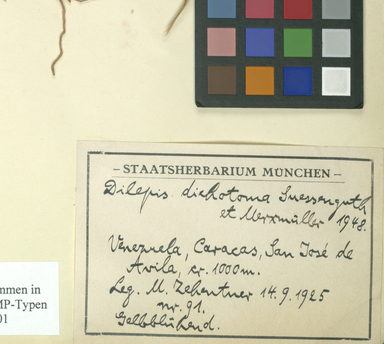 – STAATSHERBARIUM MÜNCHEN –
Dilepis dichotoma Suessenguth
et Merxmüller 1948.
Venezuela, Caracas, San José de
Avila, cr. 1000m.
Leg. M. Zehentner 14.9.1925
nr. 91.
Gelbblühend.
mmen in
MP-Typen
01